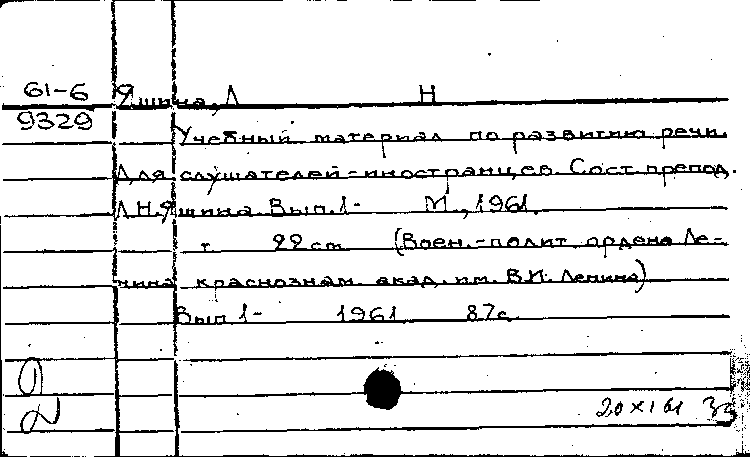 61-6 Яшина, Л Н
9329 Учебный материал по развитию речи.
Для слушателей-иностранцев. Сост. препод.
Л.Н.Яшина. Вып.1- М., 1961.
т. 22 cm. (Воен.-полит. ордена Ле-
нина краснознам. акад. им. В.И. Ленина)
Вып 1- 1961 87с.
20 X 161